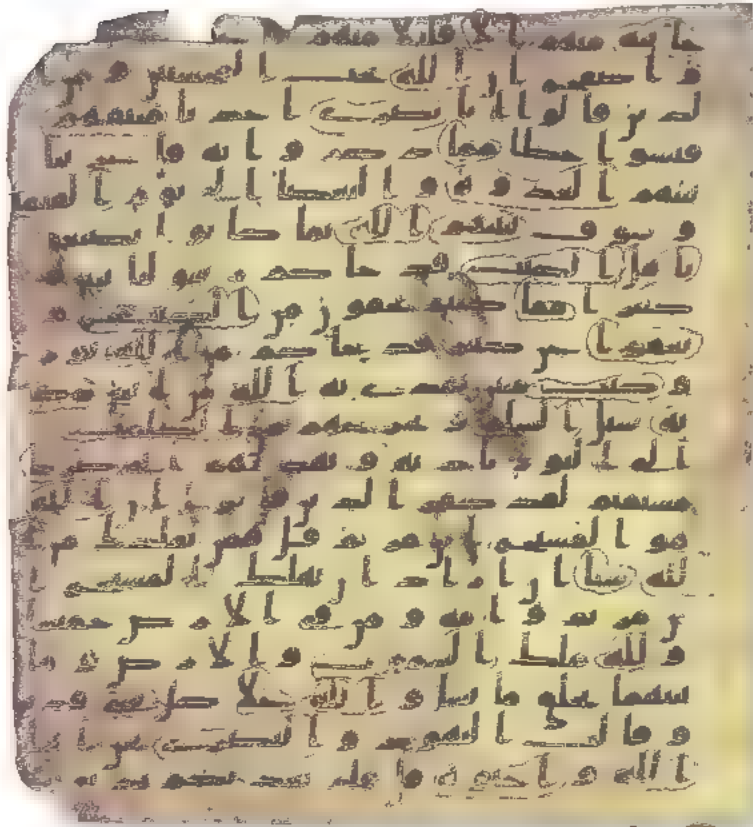 خاينه منهم الا قليلا منهم
و اصفح ان الله يحب المحسنين و من ا
لذين قالوا انا نصرى اخذنا ميثقهم
فنسوا حظا مما ذكروا به فاغرينا
بينهم العدوه و البغضا الى يوم القيمه
و سوف ينبئهم الله بما كانوا يصنعون
ياهل الكتب قد جاكم رسولنا يبين
كثيرا مما كنتم تخفون من الكتب و
يعفوا عن كثير قد جاكم من الله نور
و كتب مبين يهدى به الله من اتبع رضو
نه سبل السلم و يخرجهم من الظلمت
الى النور باذنه و يهديهم الى صرط
مستقيم لقد كفر الذين قالوا ان الله
هو المسيح ابن مريم قل فمن يملك من ا
لله شيا ان اراد ان يهلك المسيح ا
بن مريم و امه و من فى الارض جميعا
و لله ملك السموت و الارض و ما
بينهما يخلق ما يشا و الله على كل شى قدير
و قالت اليهود و النصرى نحن ابنوا
الله و احبوه قل فلم يعذبكم بذنو